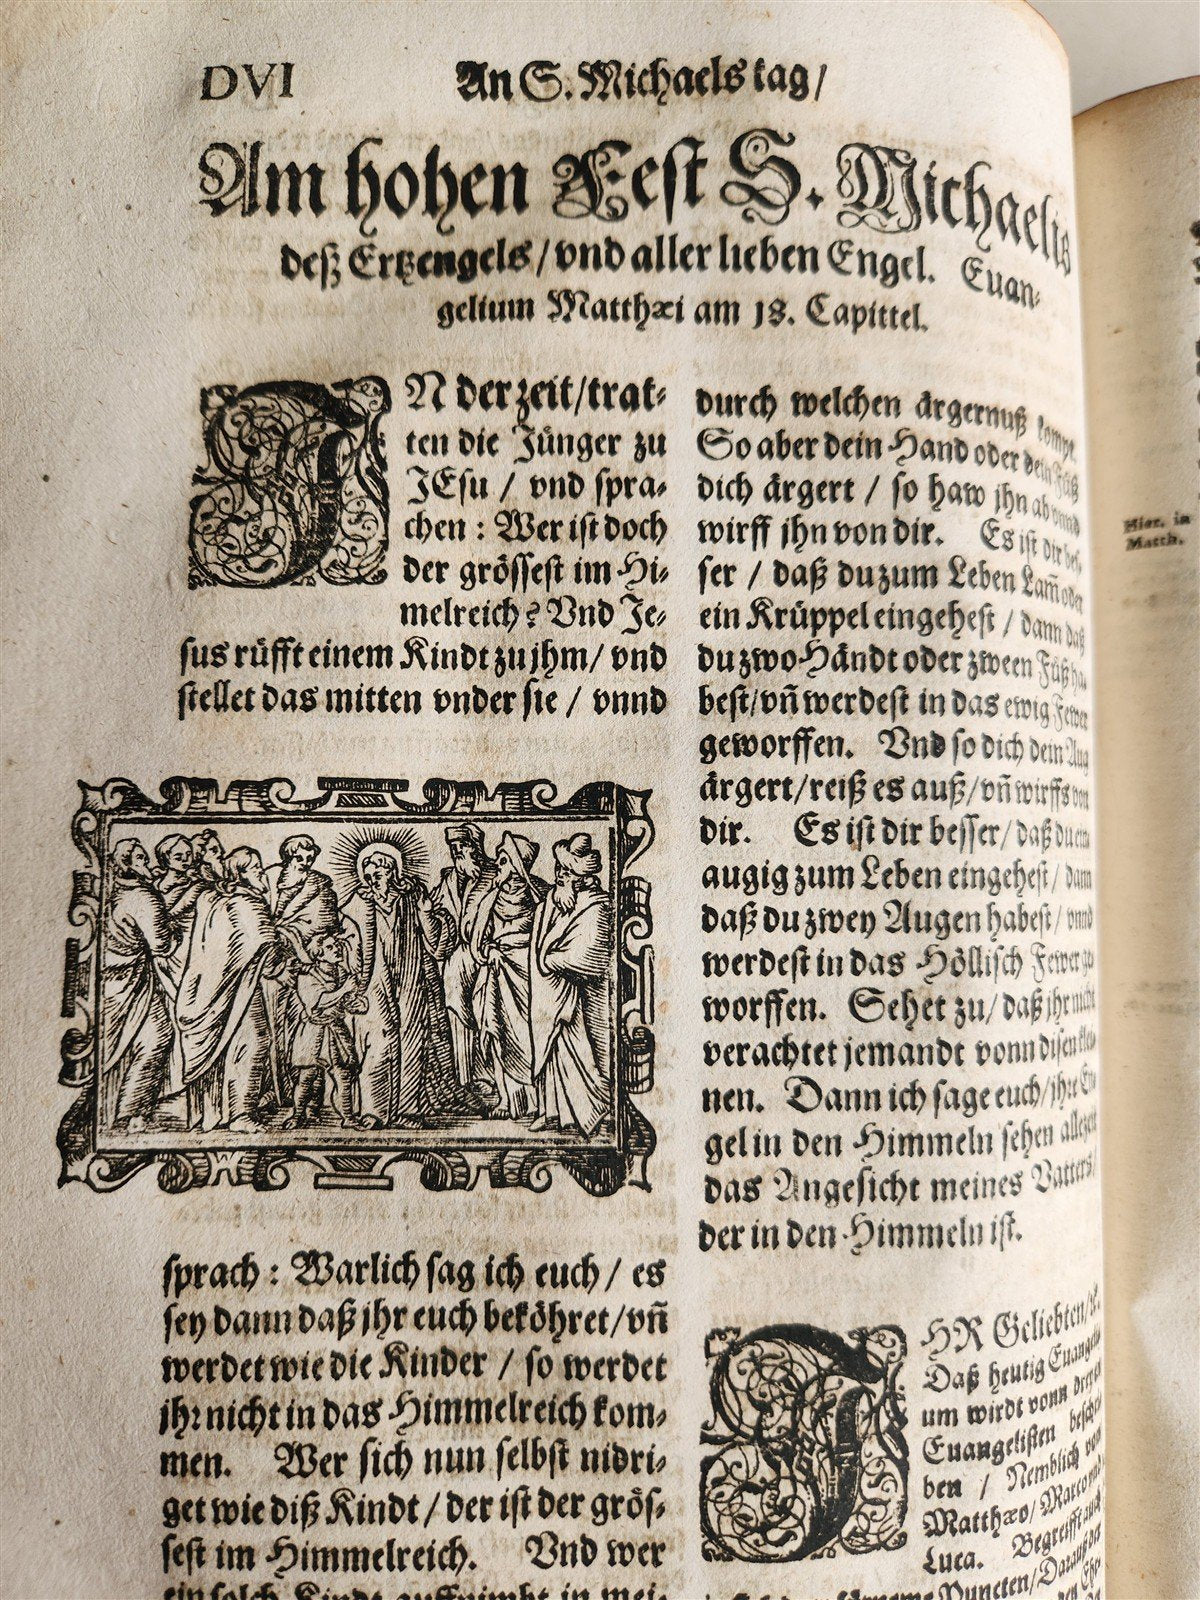 DVI
An S. Michaels tag/
Am hohen Fest S. Michaelis
deß Ertzengels/vnd aller lieben Engel. Euan-
gelium Matthæi am 18. Capittel.
IN der zeit/trat-
ten die Jünger zu
JEsu / vnd spra-
chen : Wer ist doch
der grössest im Hi-
melreich? Vnd Je-
sus rüfft einem Kindt zu jhm/ vnd
stellet das mitten vnder sie / vnnd
sprach : Warlich sag ich euch / es
sey dann daß jhr euch beköhret/vñ
werdet wie die Kinder / so werdet
jhr nicht in das Himmelreich kom-
men. Wer sich nun selbst nidri-
get wie diß Kindt / der ist der grös-
sest im Himmelreich. Vnd wer
ein solch Kindt auffnimbt in mei-
durch welchen ärgernuß kompt.
So aber dein Hand oder dein Fůß
dich ärgert / so haw jhn ab vnnd
wirff jhn von dir. Es ist dir bes-
ser / daß du zum Leben Lam̃ oder
ein Krüppel eingehest / dann daß
du zwo Händt oder zween Füß ha-
best/vñ werdest in das ewig Fewer
geworffen. Vnd so dich dein Aug
ärgert/reiß es auß/vñ wirffs von
dir. Es ist dir besser/daß du ein
augig zum Leben eingehest/ dann
daß du zwey Augen habest/ vnnd
werdest in das Höllisch Fewer ge-
worffen. Sehet zu/ daß jhr nicht
verachtet jemandt vonn disen klei-
nen. Dann ich sage euch/jhre En-
gel in den Himmeln sehen allezeit
das Angesicht meines Vatters/
der in den Himmeln ist.
IHR Geliebten/
Daß heutig Euangeli-
um wirdt vonn dreyen
Euangelisten beschri-
ben / Nemblich von
Matthæo/ Marco vnd
Luca. Begreifft auch
Puncten/ Darauß
Hier. in
Matth.